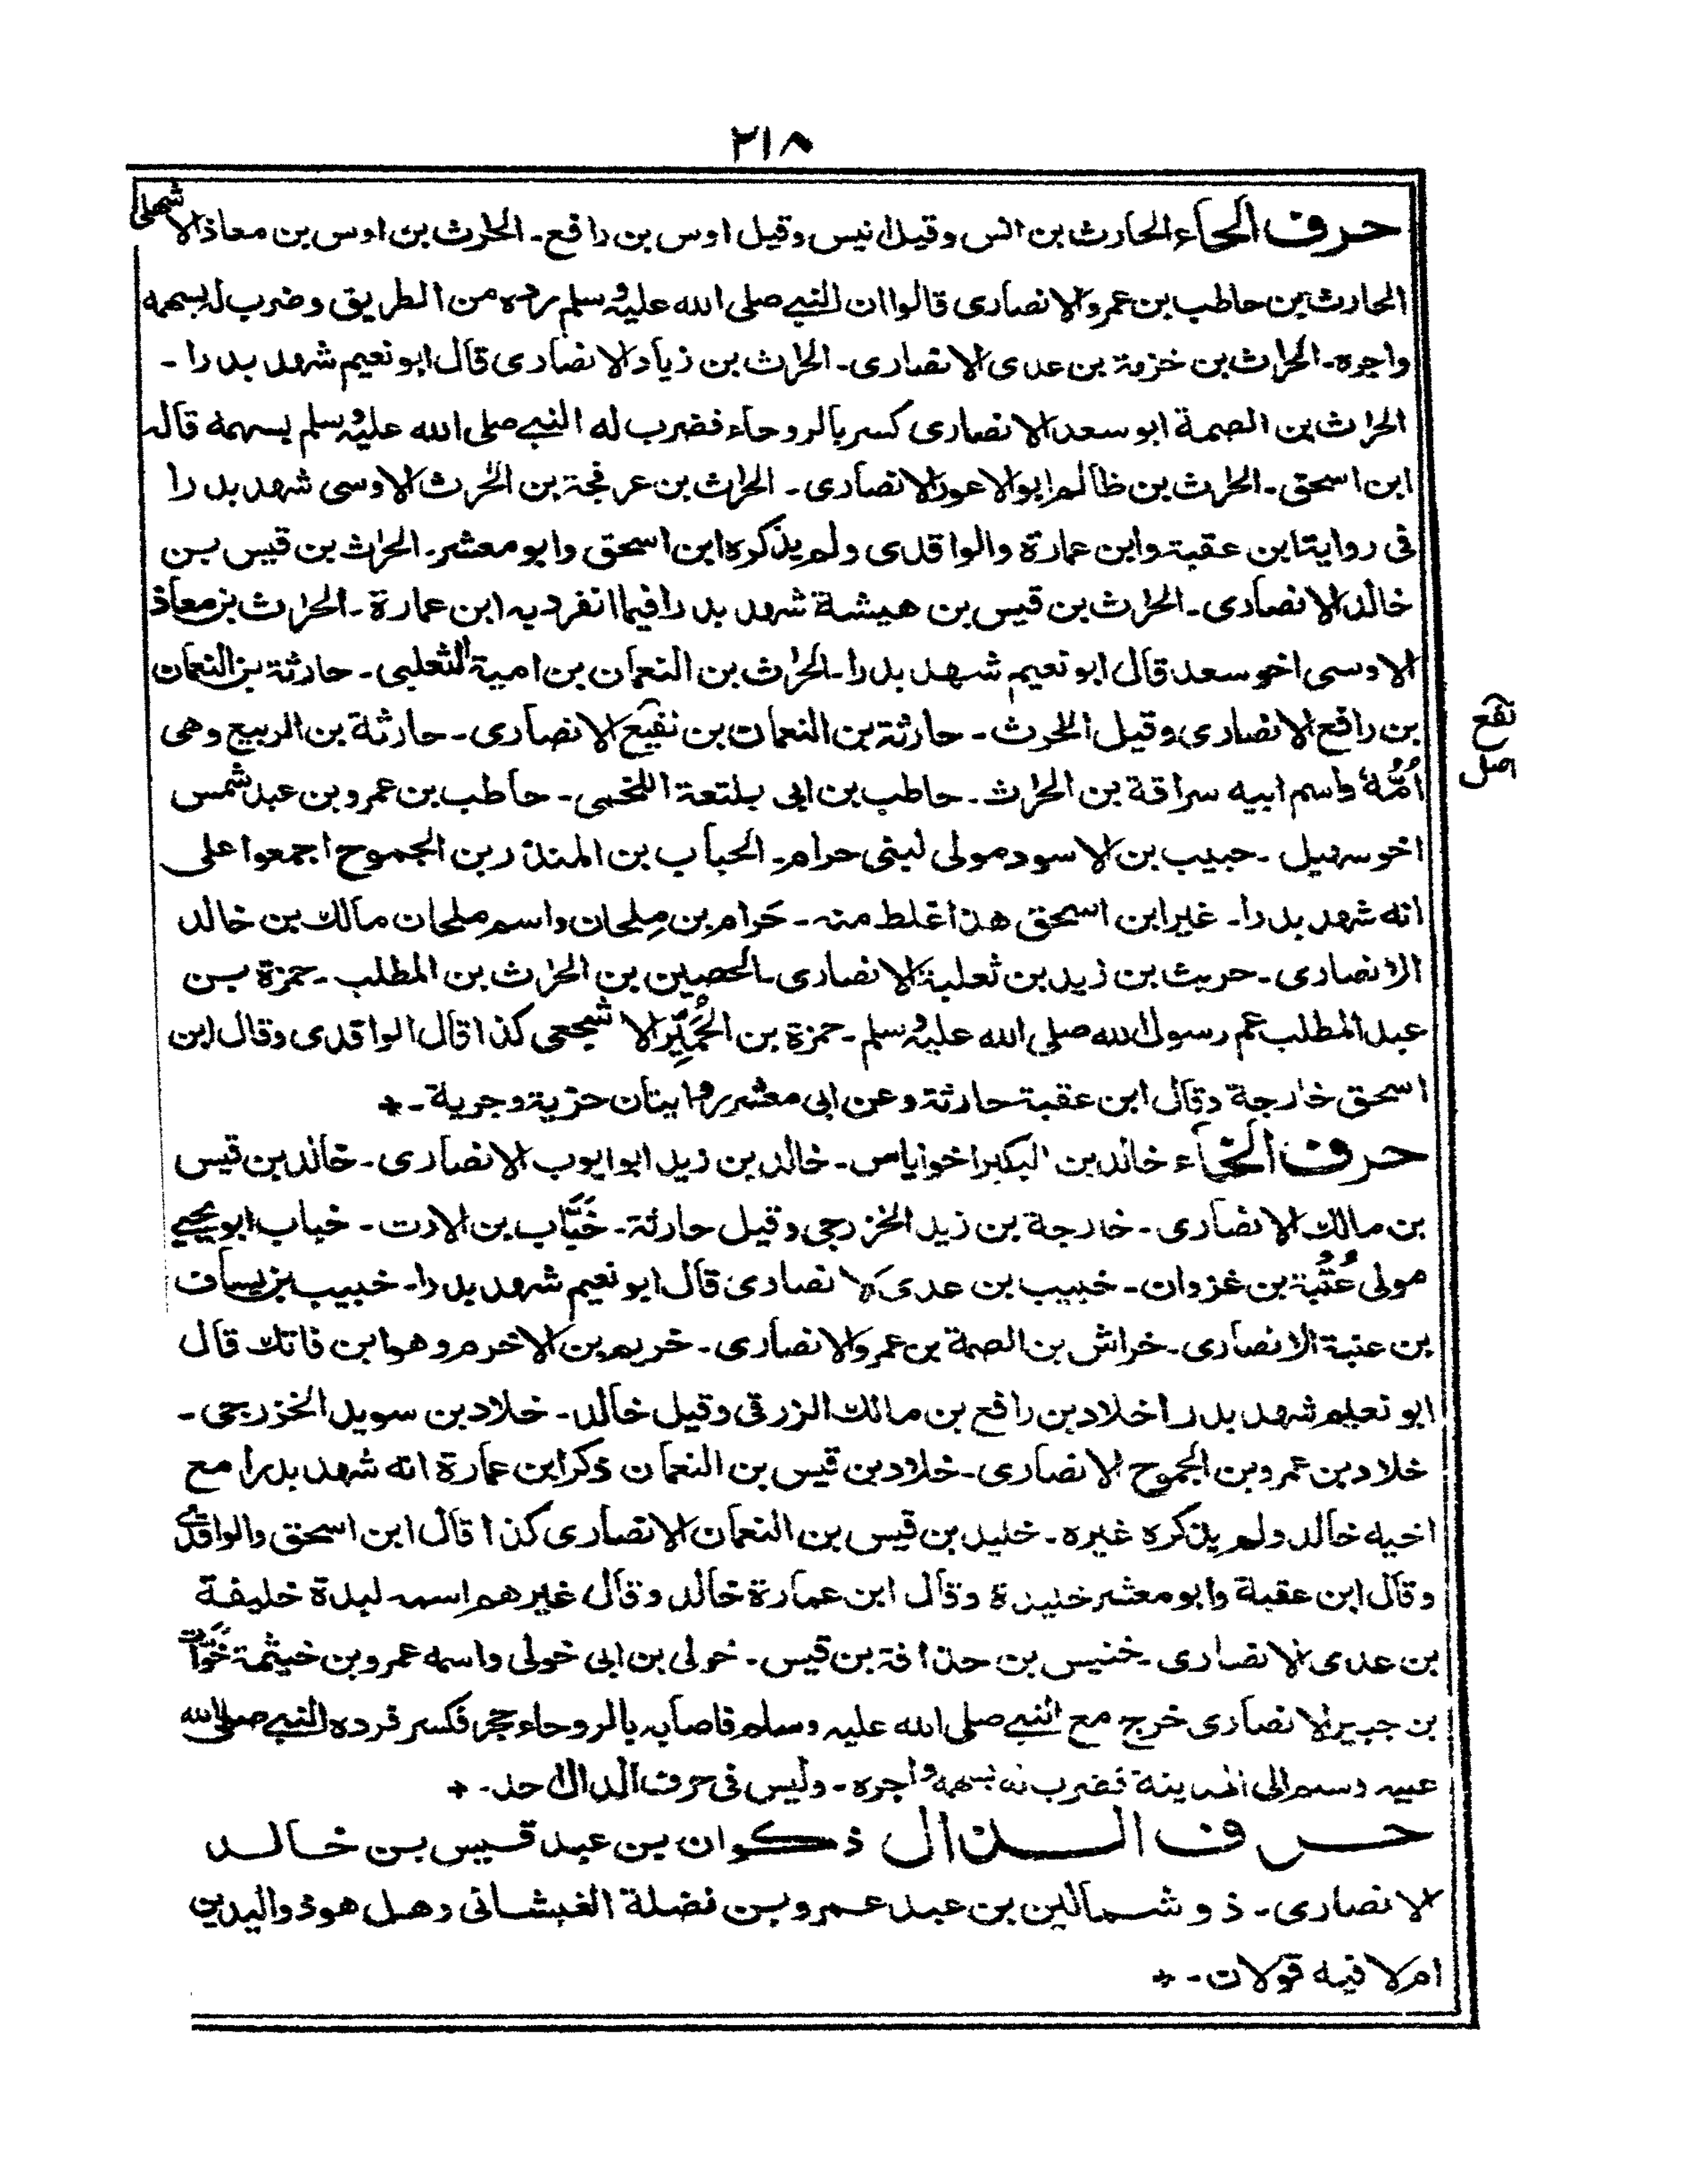 ٢١٨
حرف الحاء الحارث بن انس وقيل انيس وقيل اوس بن رافع۔ الحرث بن اوس بن معاذ الاشهلى
الحارث بن حاطب بن عمرو الانصارى قالوا ان النبى صلى الله عليه وسلم رده من الطريق وضرب له بسهمه
واجره۔ الحرث بن خزمة بن عدى الانصارى۔ الحرث بن زياد الانصارى قال ابو نعيم شهد بدرا۔
الحرث بن الصمة ابو سعد الانصارى كسر بالروحاء فضرب له النبى صلى الله عليه وسلم بسهمه قاله
ابن اسحق۔ الحرث بن ظالم ابو الاعور الانصارى۔ الحرث بن عرفجة بن الحرث الاوسى شهد بدرا
فى رواية ابن عقبة وابن عمارة والواقدى ولم يذكره ابن اسحق وابو معشر۔ الحرث بن قيس بن
خالد الانصارى۔ الحرث بن قيس بن هيشة شهد بدرا فيما انفرد به ابن عمارة۔ الحرث بن معاذ
الاوسى اخو سعد قال ابو نعيم شهد بدرا۔ الحرث بن النعمان بن امية الثعلبى۔ حارثة بن النعمان
بن رافع الانصارى وقيل الحرث۔ حارثة بن النعمان بن نفيع الانصارى۔ حارثة بن الربيع وهى
نقع
اصل
اُمُّهُ واسم ابيه سراقة بن الحرث۔ حاطب بن ابى بلتعة اللخمى۔ حاطب بن عمرو بن عبد شمس
اخو سهيل۔ حبيب بن الاسود مولى لبنى حرام۔ الحباب بن المنذر بن الجموح اجمعوا على
انه شهد بدرا۔ غير ابن اسحق هذا غلط منه۔ حَرام بن مِلحان واسم ملحان مالك بن خالد
الانصارى۔ حريث بن زيد بن ثعلبة الانصارى۔ الحصين بن الحرث بن المطلب۔ حمزة بن
عبد المطلب عم رسول الله صلى الله عليه وسلم۔ حمزة بن الحُمَيِّر الاشجعى كذا قال الواقدى وقال ابن
اسحق خارجة وقال ابن عقبة حارثة وعن ابى معشر روايتان حزية وجرية۔ *
حرف الخاء خالد بن البكير اخو اياس۔ خالد بن زيد ابو ايوب الانصارى۔ خالد بن قيس
بن مالك الانصارى۔ خارجة بن زيد الخزرجى وقيل حارثة۔ خَبَّاب بن الارت۔ خباب ابو يحيى
مولى عُتْبُة بن غزوان۔ خبيب بن عدى الانصارى قال ابو نعيم شهد بدرا۔ خبيب بن يساف
بن عنبة الانصارى۔ خراش بن الصمة بن عمرو الانصارى۔ خريم بن الاخرم وهو ابن فاتك قال
ابو نعيم شهد بدرا خلاد بن رافع بن مالك الزرقى وقيل خالد۔ خلاد بن سويد الخزرجى۔
خلاد بن عمرو بن الجموح الانصارى۔ خلاد بن قيس بن النعمان ذكر ابن عمارة انه شهد بدرا مع
اخيه خالد ولم يذكره غيره۔ خليد بن قيس بن النعمان الانصارى كذا قال ابن اسحق والواقدى
وقال ابن عقبة وابو معشر خليدة وقال ابن عمارة خالد وقال غيرهم اسمه لبدة خليفة
بن عدى الانصارى۔ خنيس بن حذافة بن قيس۔ خولى بن ابى خولى واسمه عمرو بن خيثمة خَوَّات
بن جبير الانصارى خرج مع النبى صلى الله عليه وسلم فاصابه بالروحاء حجر فكسر فرده النبى صلى الله
عليه وسلم الى المدينة فضرب له بسهمه واجره۔ وليس فى حرف الدال احد۔ *
حرف الذال ذكوان بن عبد قيس بن خالد
الانصارى۔ ذو شمالين بن عبد عمرو بن نضلة الغبشانى وهل هو ذو اليدين
ام لا فيه قولان۔ *